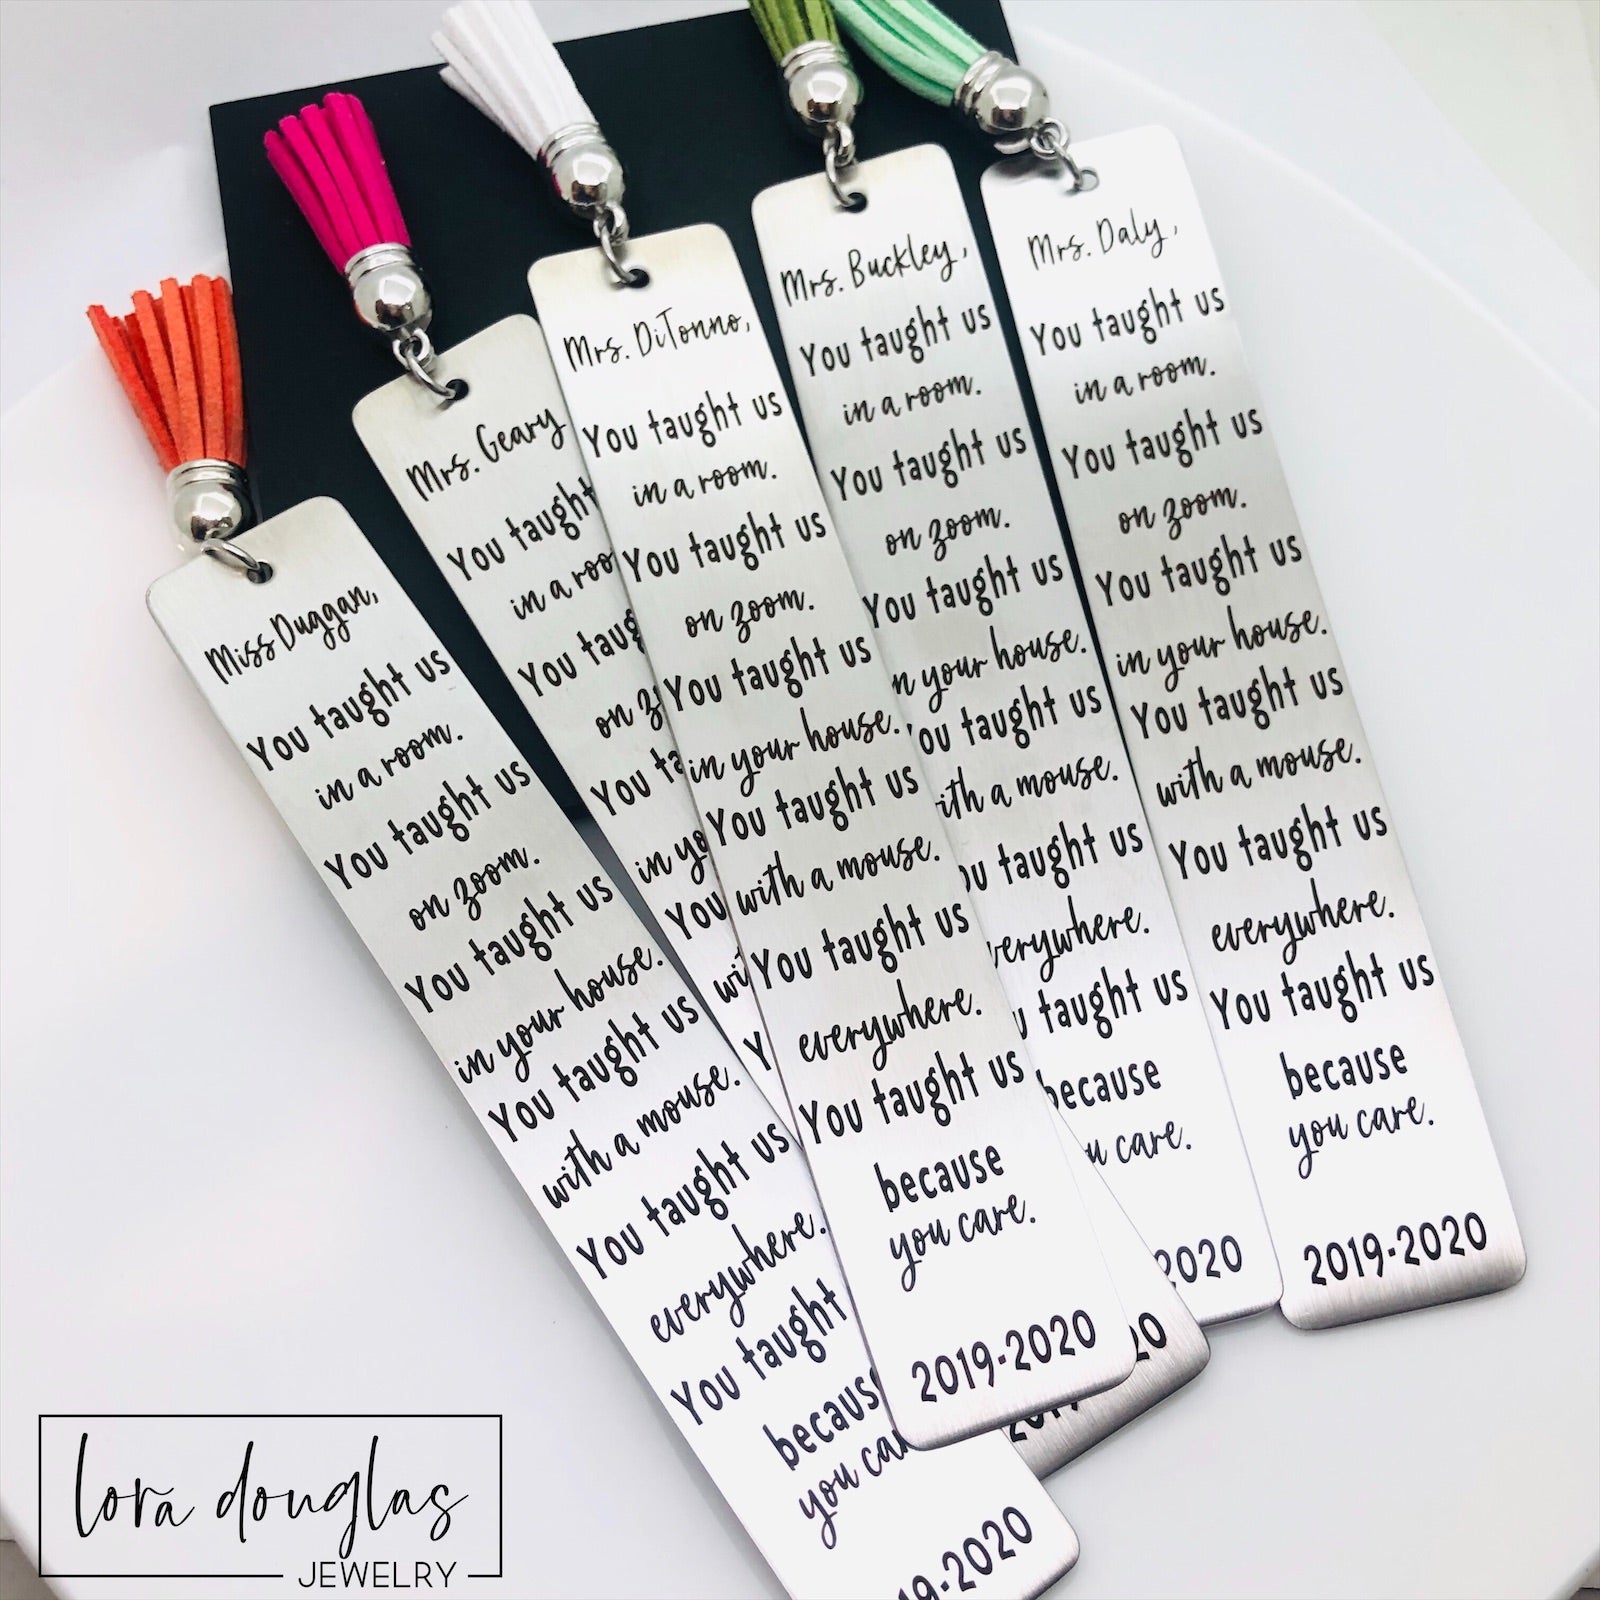 Miss Duggan,
You taught us
in a room.
You taught us
on zoom.
You taught us
in your house.
You taught us
with a mouse.
You taught us
everywhere.
You taught
because
you
2020
Mrs. Geary
You taught
in a
You
on
You
in
You
Mrs. DiTonno,
You taught us
in a room.
You taught us
on zoom.
You taught us
in your house.
You taught us
with a mouse.
You taught us
everywhere.
You taught us
because
you care.
2019-2020
Mrs. Buckley,
You taught us
in a room.
You taught us
on zoom.
You taught us
your house.
taught us
a mouse.
taught us
taught us
because
care.
2020
Mrs. Daly,
You taught us
in a room.
You taught us
on zoom.
You taught us
in your house.
You taught us
with a mouse.
You taught us
everywhere.
You taught us
because
you care.
2019-2020
lora douglas
JEWELRY